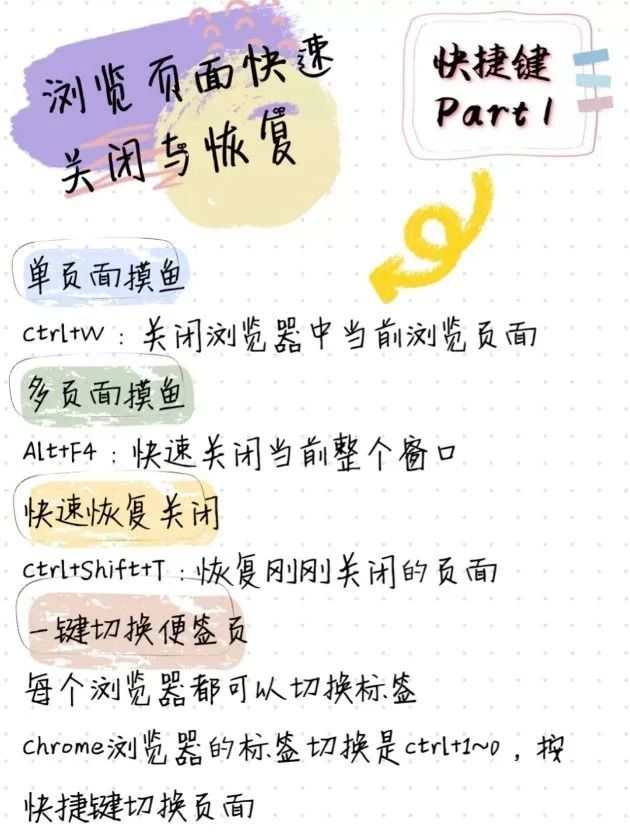 浏览页面快速
关闭与恢复
快捷键
Part 1
单页面摸鱼
ctrl+W：关闭浏览器中当前浏览页面
多页面摸鱼
Alt+F4：快速关闭当前整个窗口
快速恢复关闭
ctrl+Shift+T：恢复刚刚关闭的页面
一键切换便签页
每个浏览器都可以切换标签
chrome浏览器的标签切换是ctrl+1~0，按
快捷键切换页面